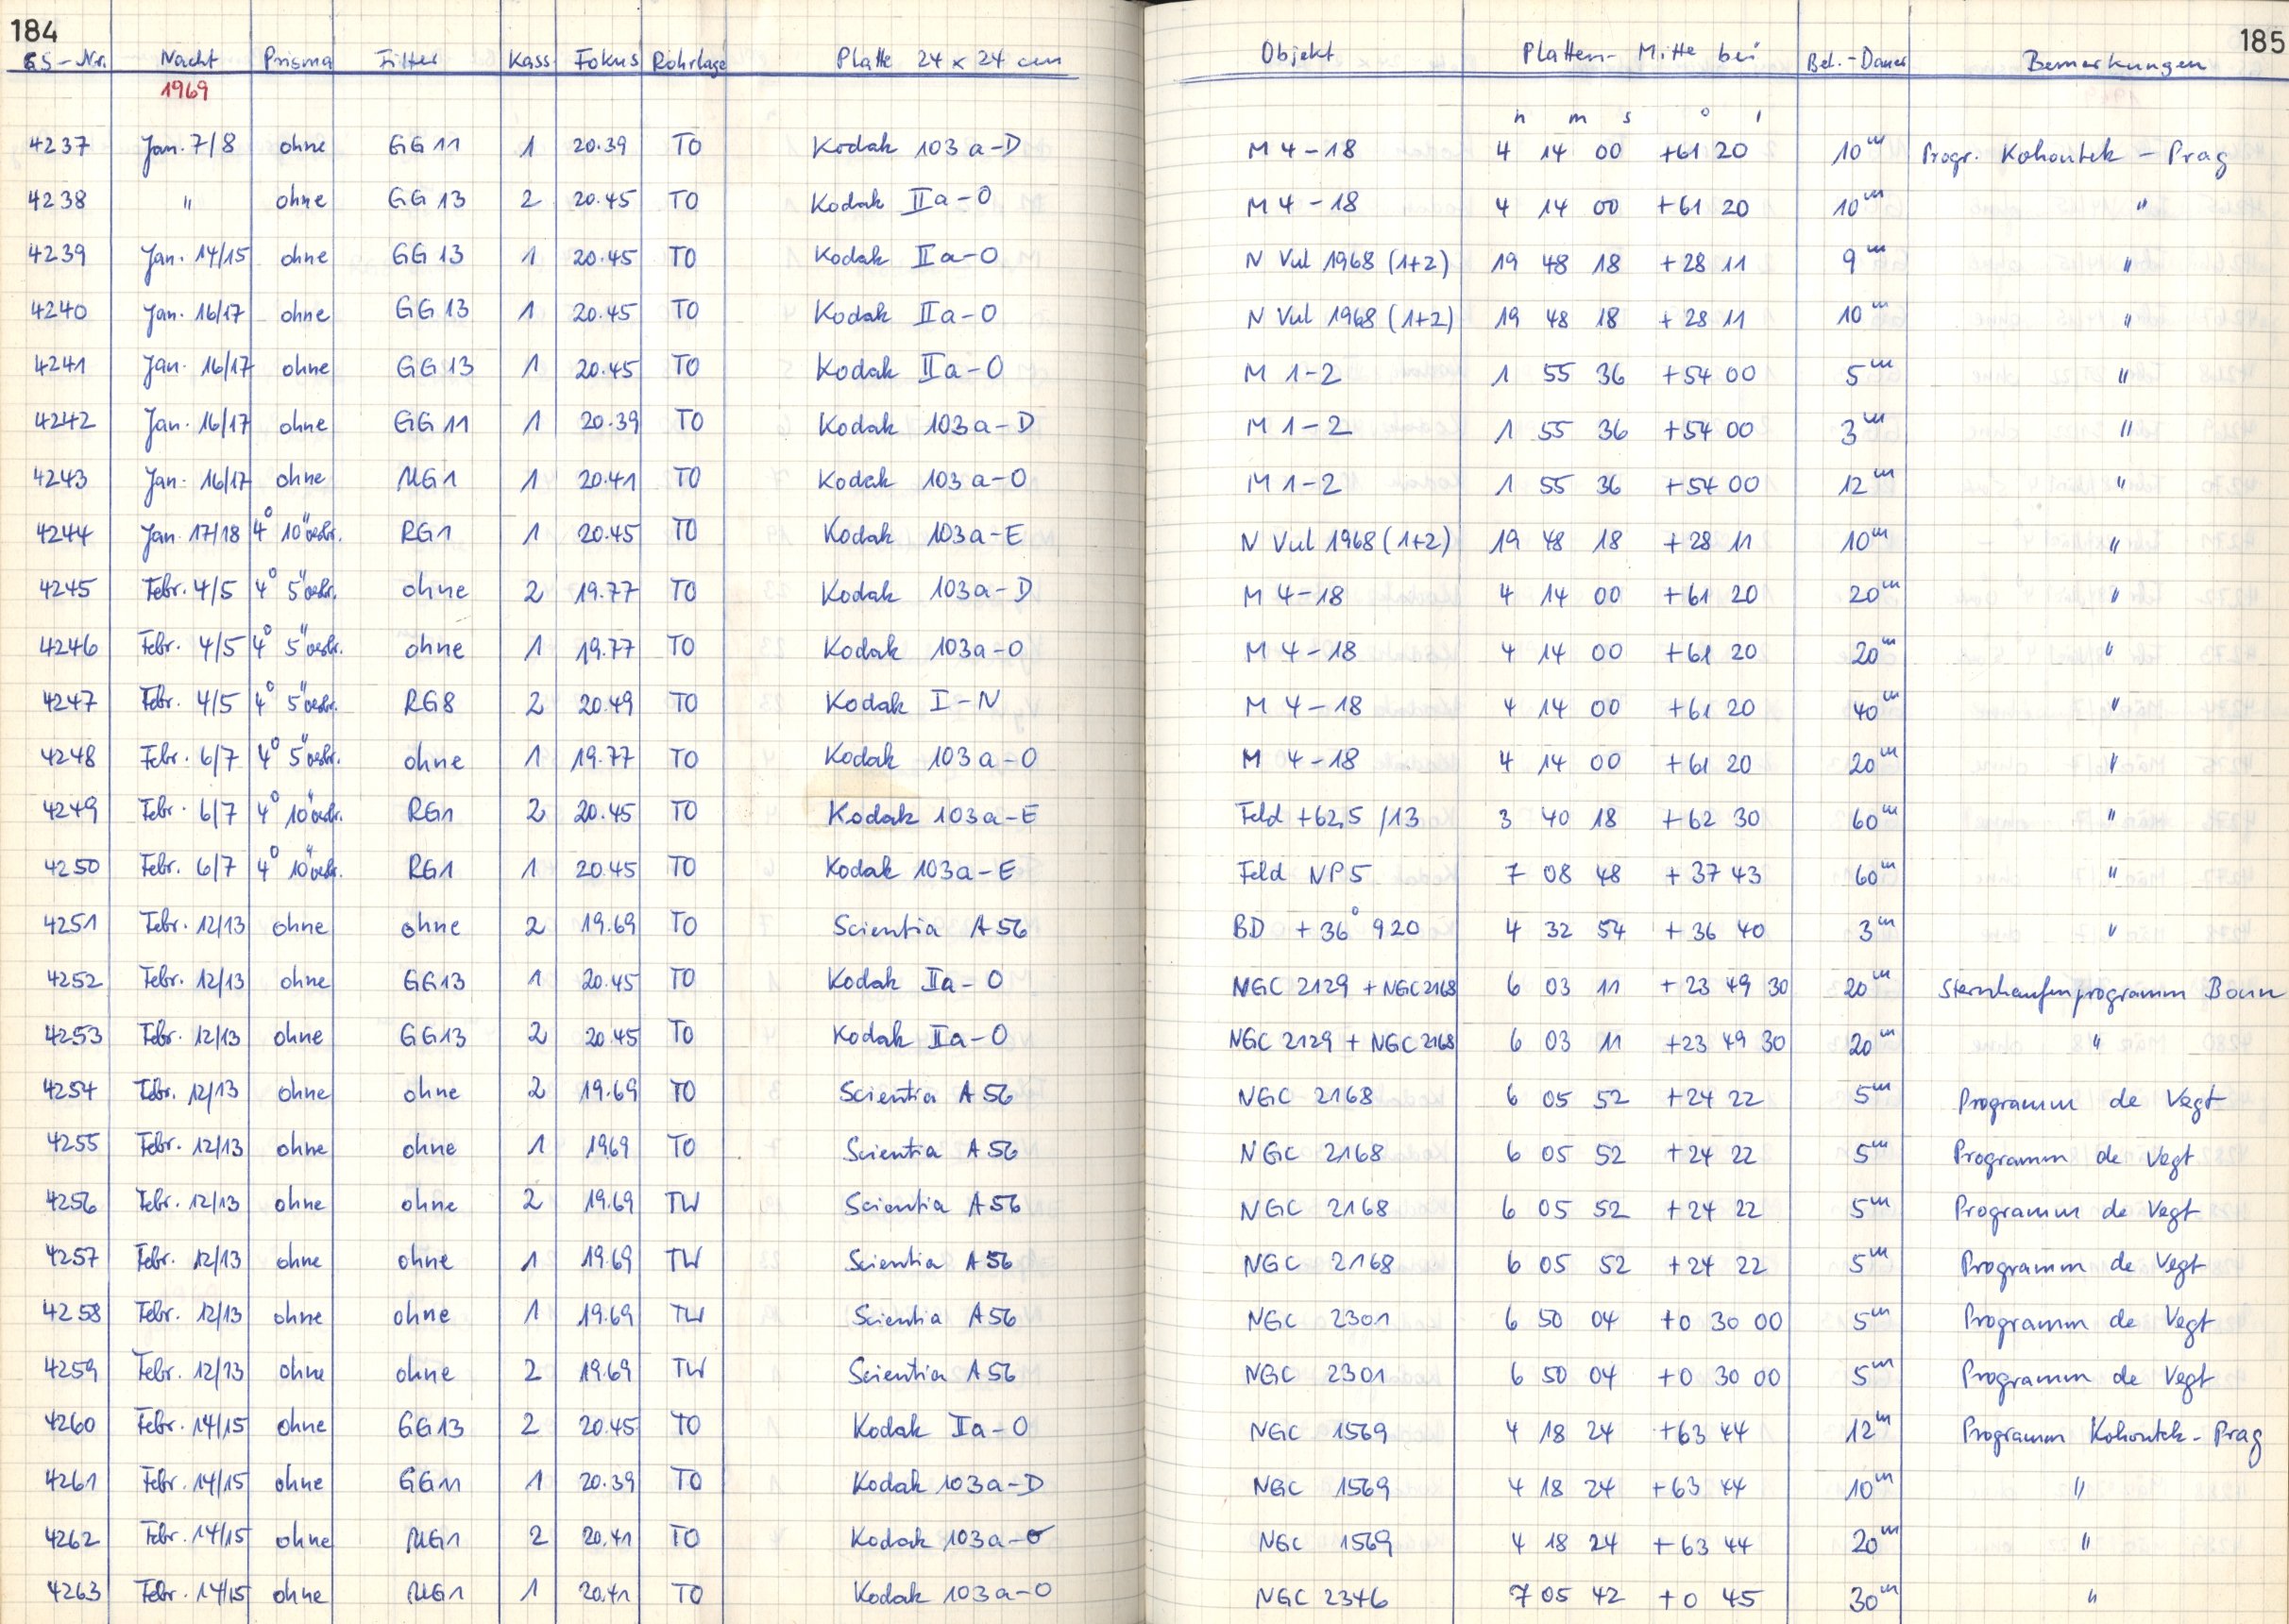 184
185
GS-Nr. Nacht Prisma Filter Kass Fokus Rohrlage Platte 24 x 24 cm Objekt Platten- Mitte bei Bel.-Dauer Bemerkungen
1969
h m s ° '
4237 Jan. 7/8 ohne GG 11 1 20.39 TO Kodak 103 a-D M 4-18 4 14 00 +61 20 10m Progr. Kohoutek - Prag
4238 " ohne GG 13 2 20.45 TO Kodak IIa-O M 4-18 4 14 00 +61 20 10m "
4239 Jan. 14/15 ohne GG 13 1 20.45 TO Kodak IIa-O N Vul 1968 (1+2) 19 48 18 +28 11 9m "
4240 Jan. 16/17 ohne GG 13 1 20.45 TO Kodak IIa-O N Vul 1968 (1+2) 19 48 18 +28 11 10m "
4241 Jan. 16/17 ohne GG 13 1 20.45 TO Kodak IIa-O M 1-2 1 55 36 +54 00 5m "
4242 Jan. 16/17 ohne GG 11 1 20.39 TO Kodak 103a-D M 1-2 1 55 36 +54 00 3m "
4243 Jan. 16/17 ohne UG1 1 20.41 TO Kodak 103a-O M 1-2 1 55 36 +54 00 12m "
4244 Jan 17/18 4° 10" RG1 1 20.45 TO Kodak 103a-E N Vul 1968 (1+2) 19 48 18 +28 11 10m "
4245 Febr. 4/5 4° 5" ohne 2 19.77 TO Kodak 103a-D M 4-18 4 14 00 +61 20 20m "
4246 Febr. 4/5 4° 5" ohne 1 19.77 TO Kodak 103a-O M 4-18 4 14 00 +61 20 20m "
4247 Febr. 4/5 4° 5" RG8 2 20.49 TO Kodak I-N M 4-18 4 14 00 +61 20 40m "
4248 Febr. 6/7 4° 5" ohne 1 19.77 TO Kodak 103a-O M 4-18 4 14 00 +61 20 20m "
4249 Febr. 6/7 4° 10" RG1 2 20.45 TO Kodak 103a-E Feld +62,5 /13 3 40 18 +62 30 60m "
4250 Febr. 6/7 4° 10" RG1 1 20.45 TO Kodak 103a-E Feld NP5 7 08 48 +37 43 60m "
4251 Febr. 12/13 ohne ohne 2 19.69 TO Scientia A56 BD +36° 920 4 32 54 +36 40 3m "
4252 Febr. 12/13 ohne GG13 1 20.45 TO Kodak IIa-O NGC 2129 + NGC 2168 6 03 11 +23 49 30 20m Sternhaufenprogramm Bonn
4253 Febr. 12/13 ohne GG13 2 20.45 TO Kodak IIa-O NGC 2129 + NGC 2168 6 03 11 +23 49 30 20m "
4254 Febr. 12/13 ohne ohne 2 19.69 TO Scientia A56 NGC 2168 6 05 52 +24 22 5m Programm de Vegt
4255 Febr. 12/13 ohne ohne 1 19.69 TO Scientia A56 NGC 2168 6 05 52 +24 22 5m Programm de Vegt
4256 Febr. 12/13 ohne ohne 2 19.69 TW Scientia A56 NGC 2168 6 05 52 +24 22 5m Programm de Vegt
4257 Febr. 12/13 ohne ohne 1 19.69 TW Scientia A56 NGC 2168 6 05 52 +24 22 5m Programm de Vegt
4258 Febr. 12/13 ohne ohne 1 19.69 TW Scientia A56 NGC 2301 6 50 04 +0 30 00 5m Programm de Vegt
4259 Febr. 12/13 ohne ohne 2 19.69 TW Scientia A56 NGC 2301 6 50 04 +0 30 00 5m Programm de Vegt
4260 Febr. 14/15 ohne GG13 2 20.45 TO Kodak IIa-O NGC 1569 4 18 24 +63 44 12m Programm Kohoutek-Prag
4261 Febr. 14/15 ohne GG11 1 20.39 TO Kodak 103a-D NGC 1569 4 18 24 +63 44 10m "
4262 Febr. 14/15 ohne UG1 2 20.41 TO Kodak 103a-O NGC 1569 4 18 24 +63 44 20m "
4263 Febr. 14/15 ohne UG1 1 20.41 TO Kodak 103a-O NGC 2346 7 05 42 +0 45 30m "